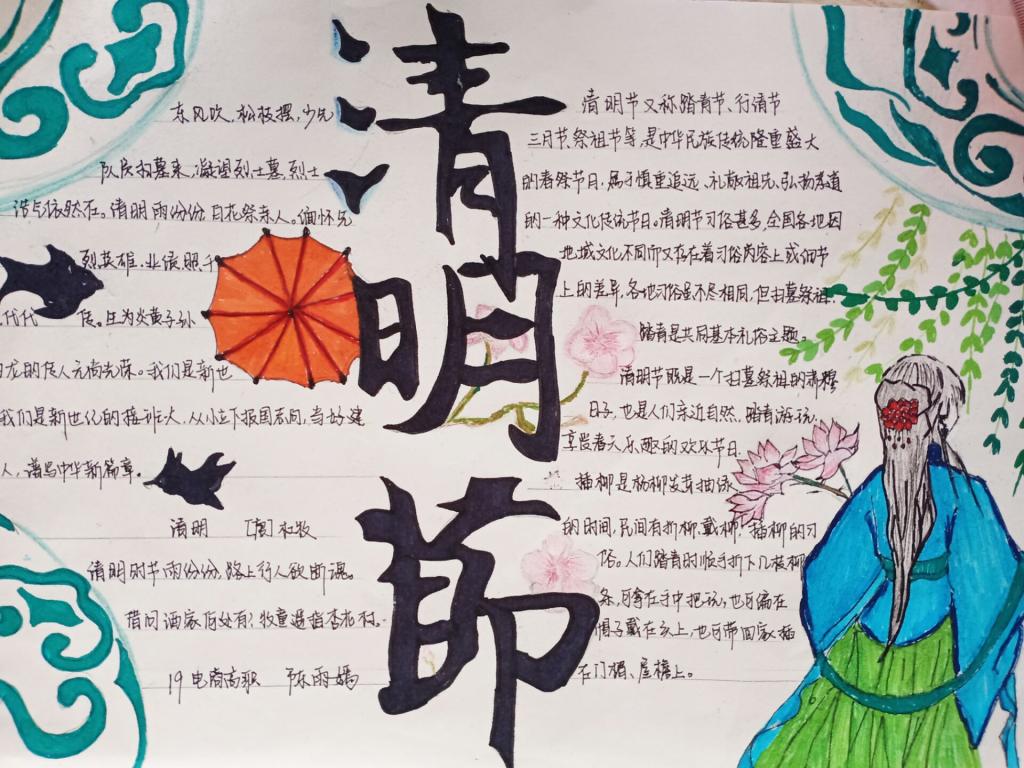 清明节
东风吹,松枝摆,少先
队员扫墓来,凝望烈士墓,烈士
浩气依然在。清明雨纷纷,白花祭亲人。缅怀先
烈英雄,业绩照千
代代 传。生为炎黄子孙
龙的传人无尚光荣。我们是新世
我们是新世纪的接班人,从小立下报国志向,当好建
人,谱写中华新篇章。
清明 杜牧
清明时节雨纷纷,路上行人欲断魂。
借问酒家何处有?牧童遥指杏花村。
19电商高职 陈雨嫣
清明节又称踏青节、行清节
三月节、祭祖节等,是中华民族传统隆重盛大
的春祭节日,属于慎重追远、礼敬祖先、弘扬孝道
的一种文化传统节日。清明节习俗甚多,全国各地因
地域文化不同而又存在着习俗内容上或细节
上的差异,各地习俗虽不尽相同,但扫墓祭祖、
踏青是共同基本礼俗主题。
清明节既是一个扫墓祭祖的肃穆
日子,也是人们亲近自然、踏青游玩、
享受春天乐趣的欢乐节日.
插柳是杨柳发芽抽绿
的时间,民间有折柳、戴柳、插柳的习
俗。人们踏青时顺手折下几枝柳
条,可拿在手中把玩,也可编在
帽子戴在头上,也可带回家插
在门楣、屋檐上。